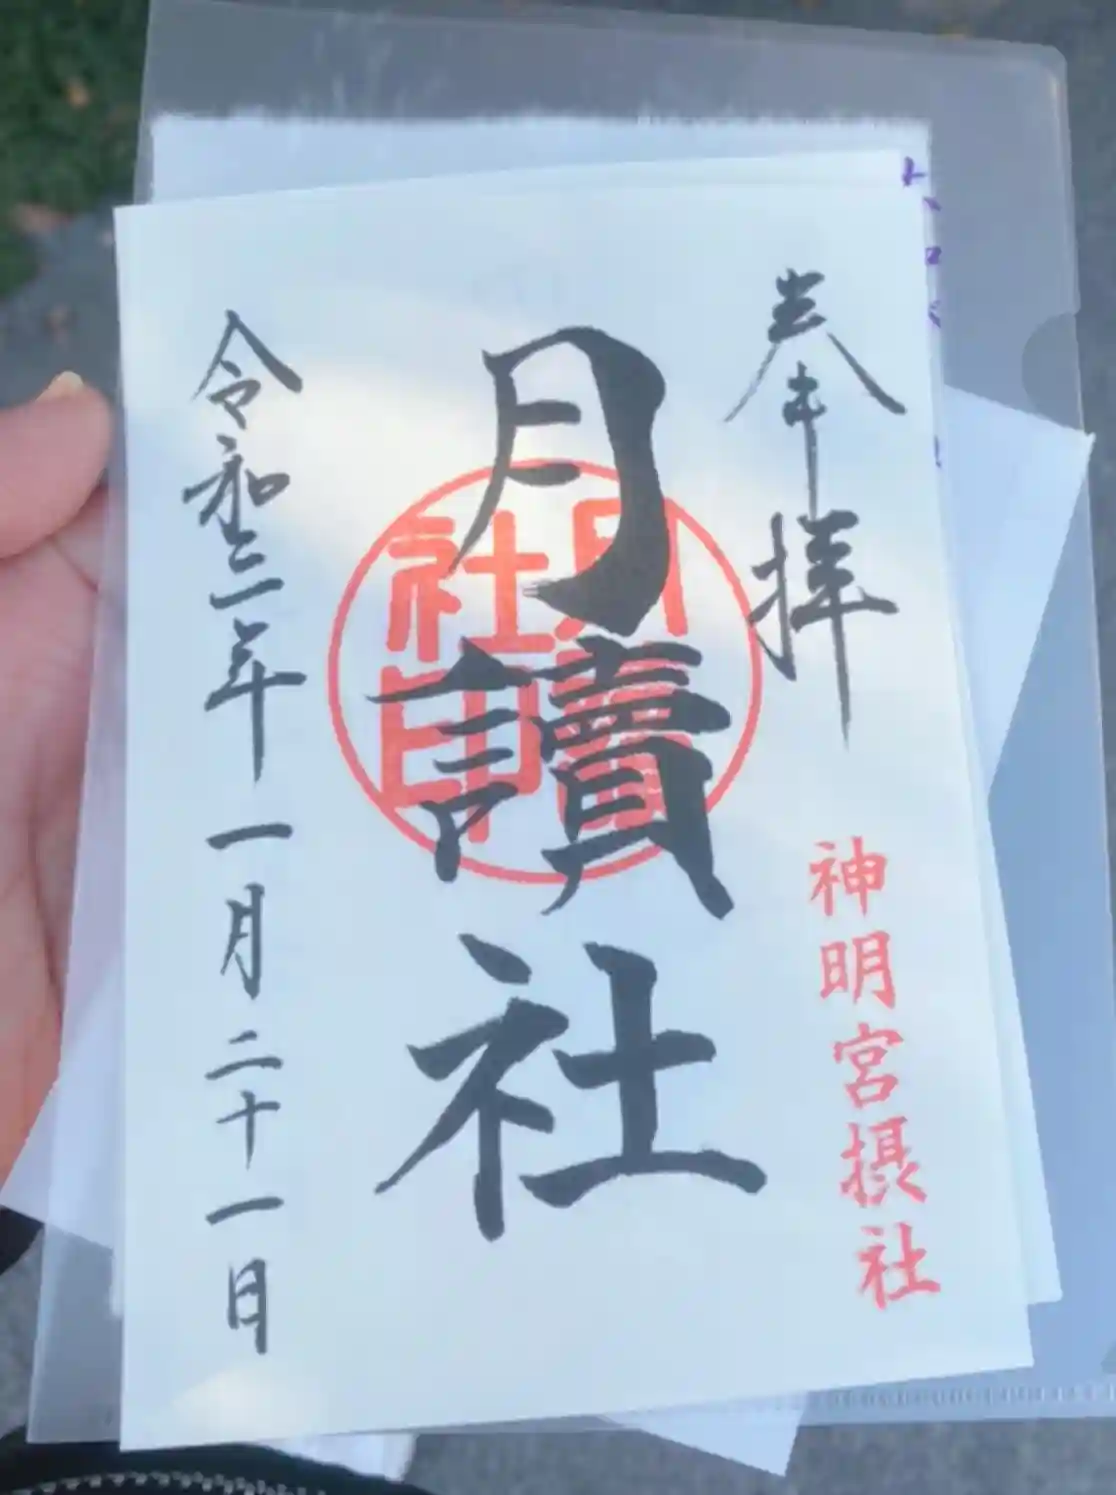 奉拝
神明宮摂社
月讀社
月讀社印
令和三年一月二十一日